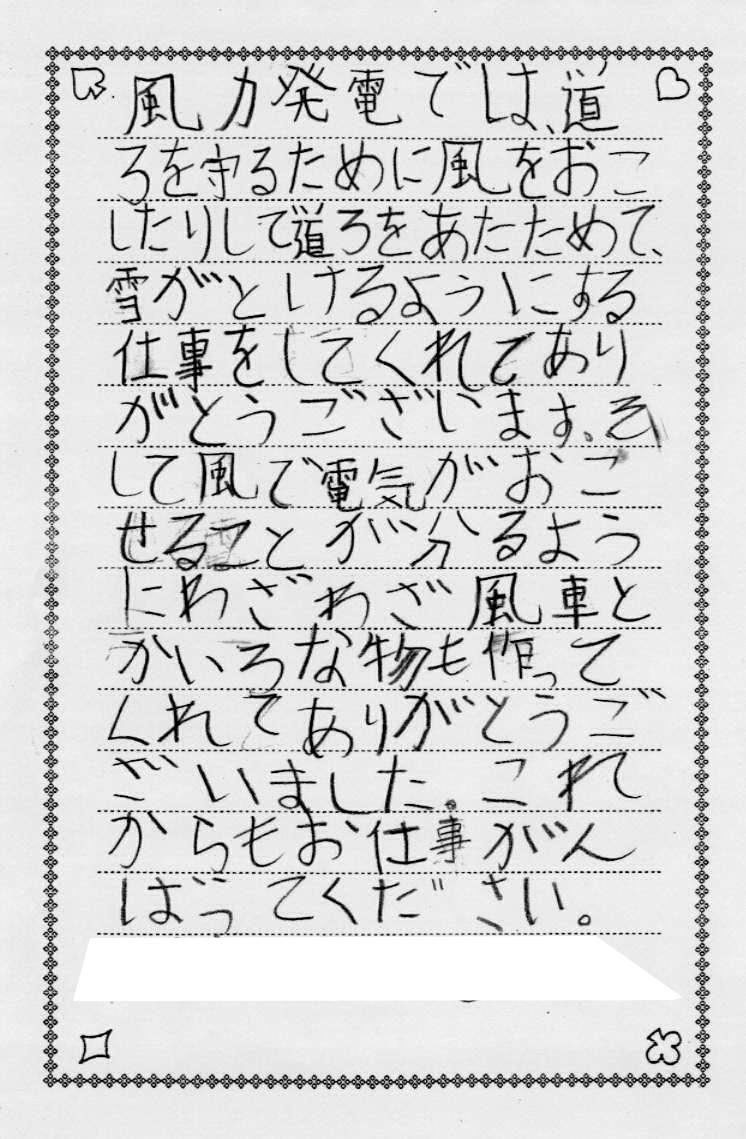 風力発電では、道
ろを守るために風をおこ
したりして道ろをあたためて、
雪がとけるようにする
仕事をしてくれてあり
がとうございます。そ
して風で電気がおこ
せることが分るよう
にわざわざ風車と
かいろな物も作って
くれてありがとうご
ざいました。これ
からもお仕事がん
ばってください。